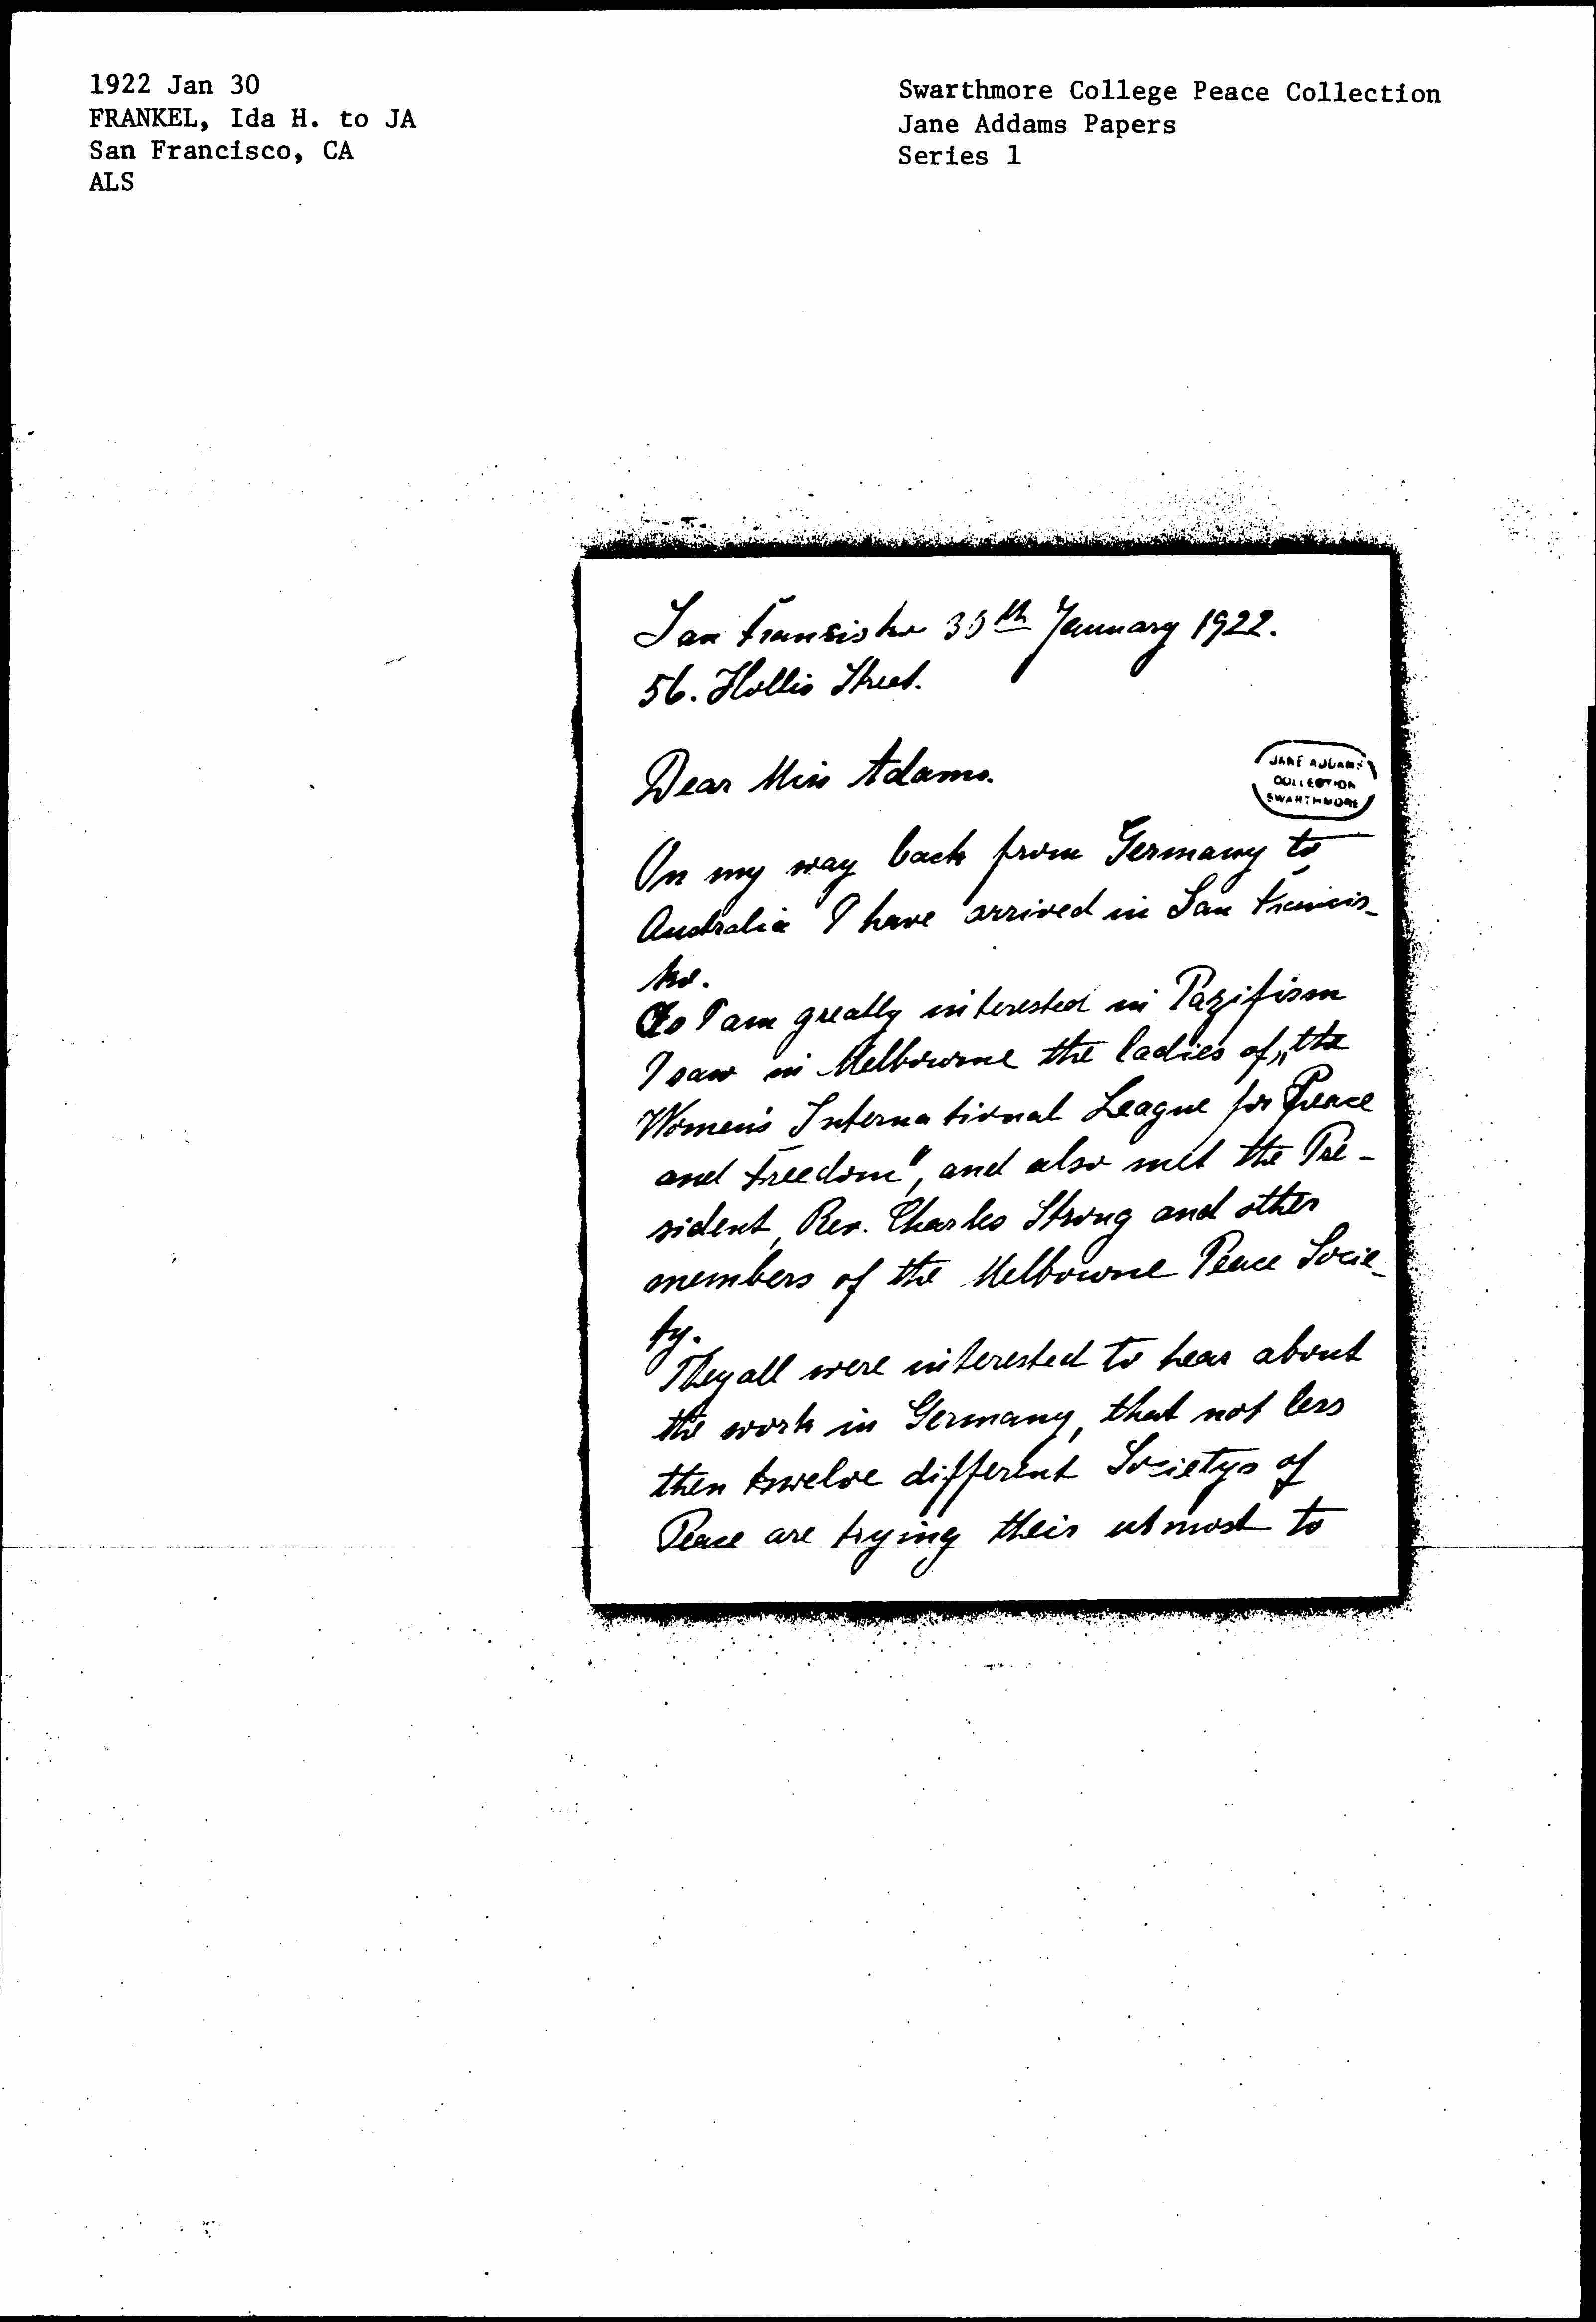 1922 Jan 30
FRANKEL, Ida H. to JA
San Francisco, CA
ALS
Swarthmore College Peace Collection
Jane Addams Papers
Series 1
San Fransisko 30th January 1922.
56. Hollis Street.
Dear Miss Adams.
JANE ADDAMS
COLLECTION
SWARTHMORE
On my way back from Germany to
Australia I have arrived in San Francis-
ko.
As I am greatly interested in Pazifism
I saw in Melbourne the ladies of „the
Women's International League for Peace
and Freedom", and also met the Pre-
sident, Rev. Charles Strong and other
members of the Melbourne Peace Socie-
ty.
They all were interested to hear about
the work in Germany, that not less
then twelve different Societys of
Peace are trying their utmost to